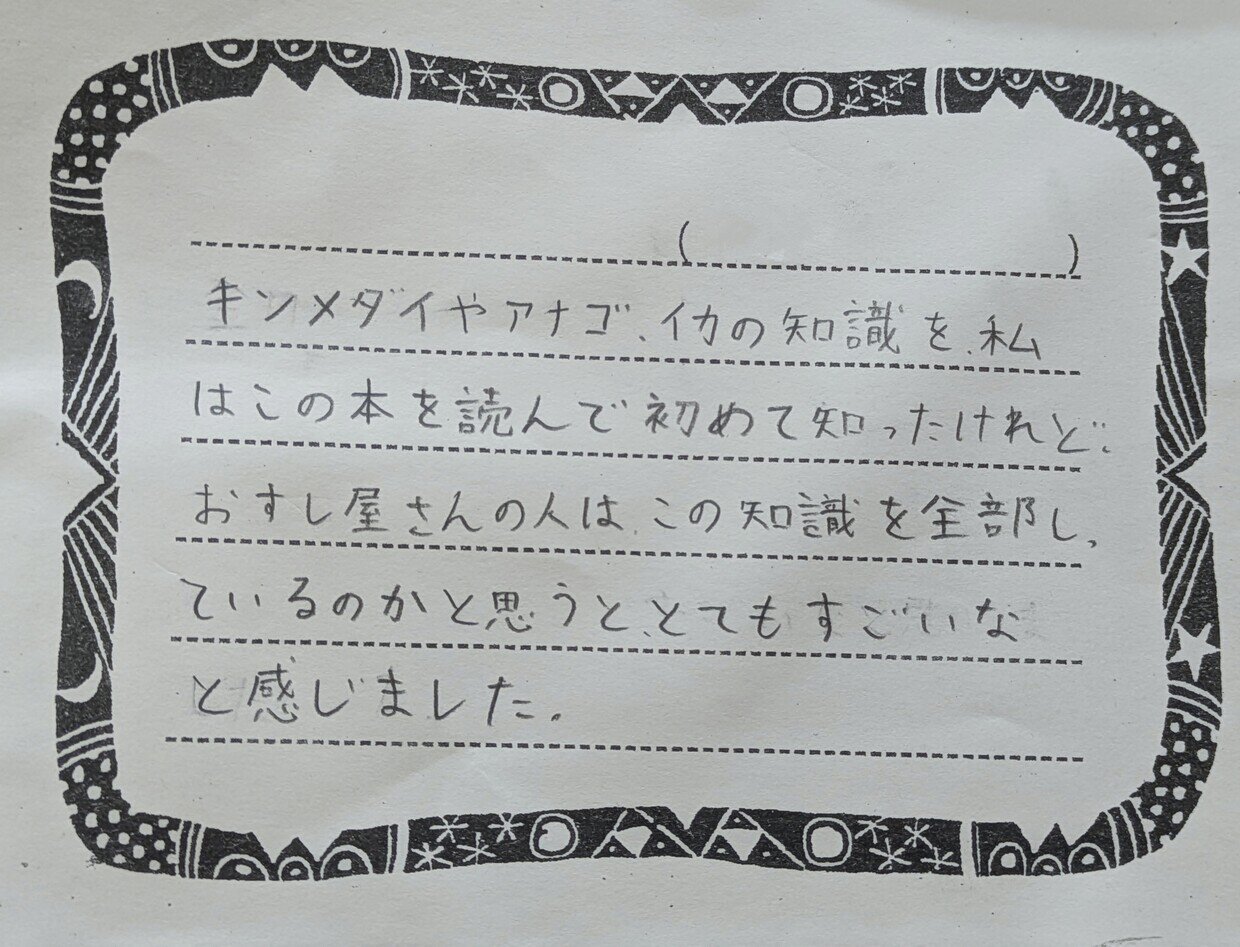 ( )
キンメダイやアナゴ、イカの知識を、私
はこの本を読んで初めて知ったけれど、
おすし屋さんの人は、この知識を全部しっ
ているのかと思うと、とてもすごいな
と感じました。